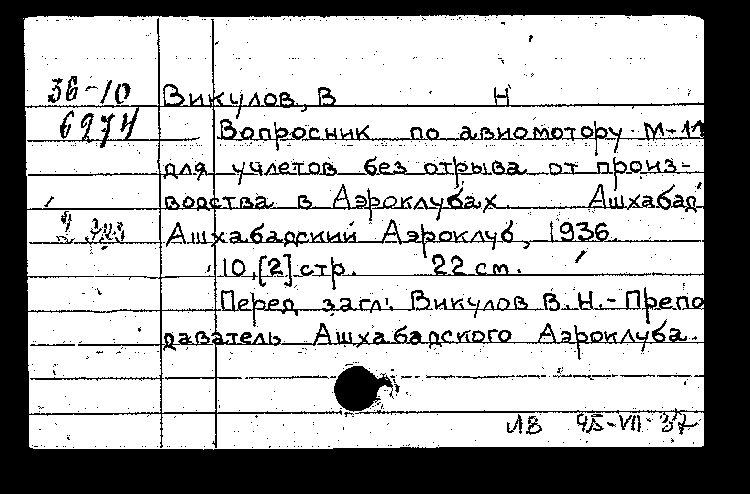 36-10 Викулов, В Н
6974 Вопросник по авиомотору М-11
для учлетов без отрыва от произ-
водства в Аэроклубах. Ашхабад
2 экз Ашхабадский Аэроклуб, 1936.
10,[2] стр. 22 см.
Перед загл: Викулов В.Н.-Препо
даватель Ашхабадского Аэроклуба.
ЛВ VII-37